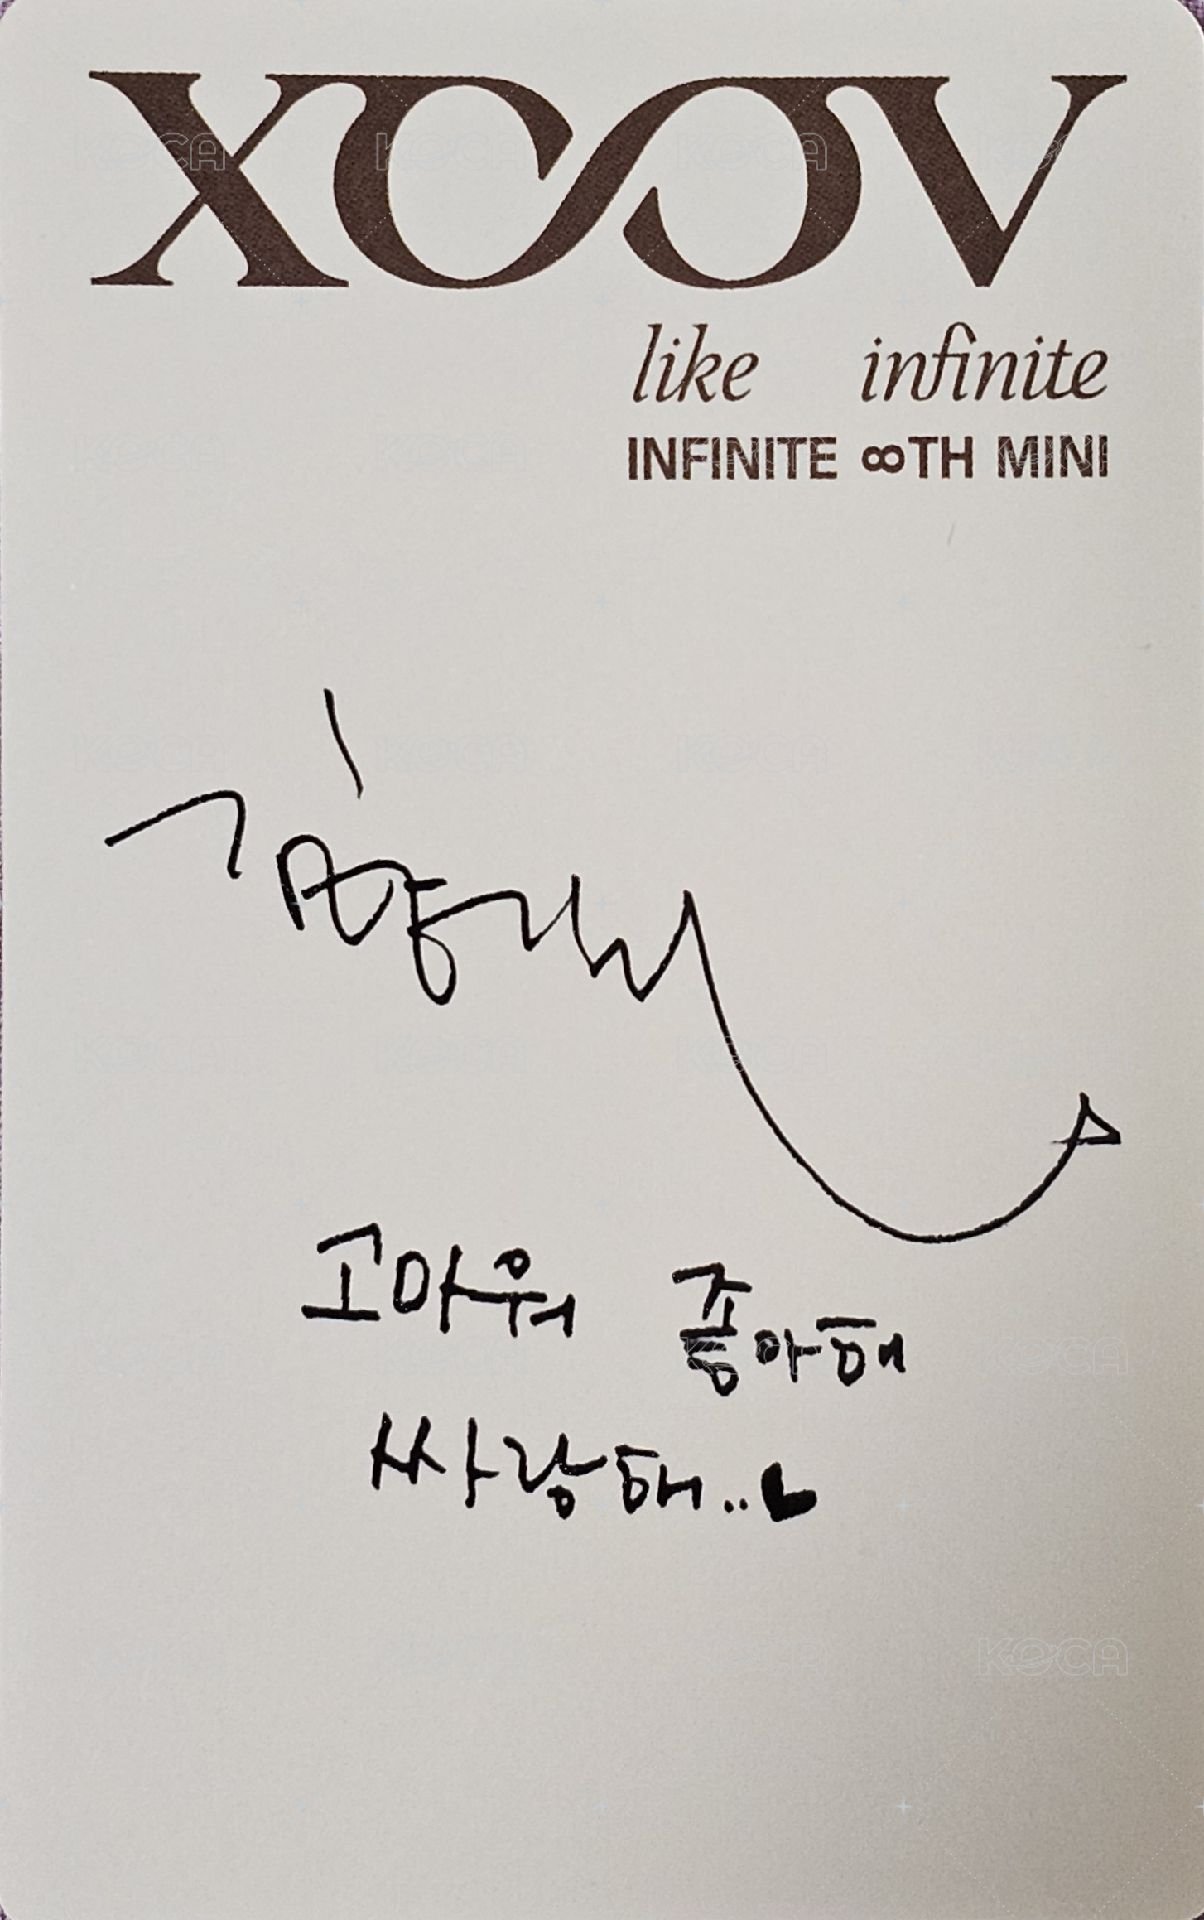 XOOV
like infinite
INFINITE ∞TH MINI
고마워 좋아해
싸랑해..♥
KOCA